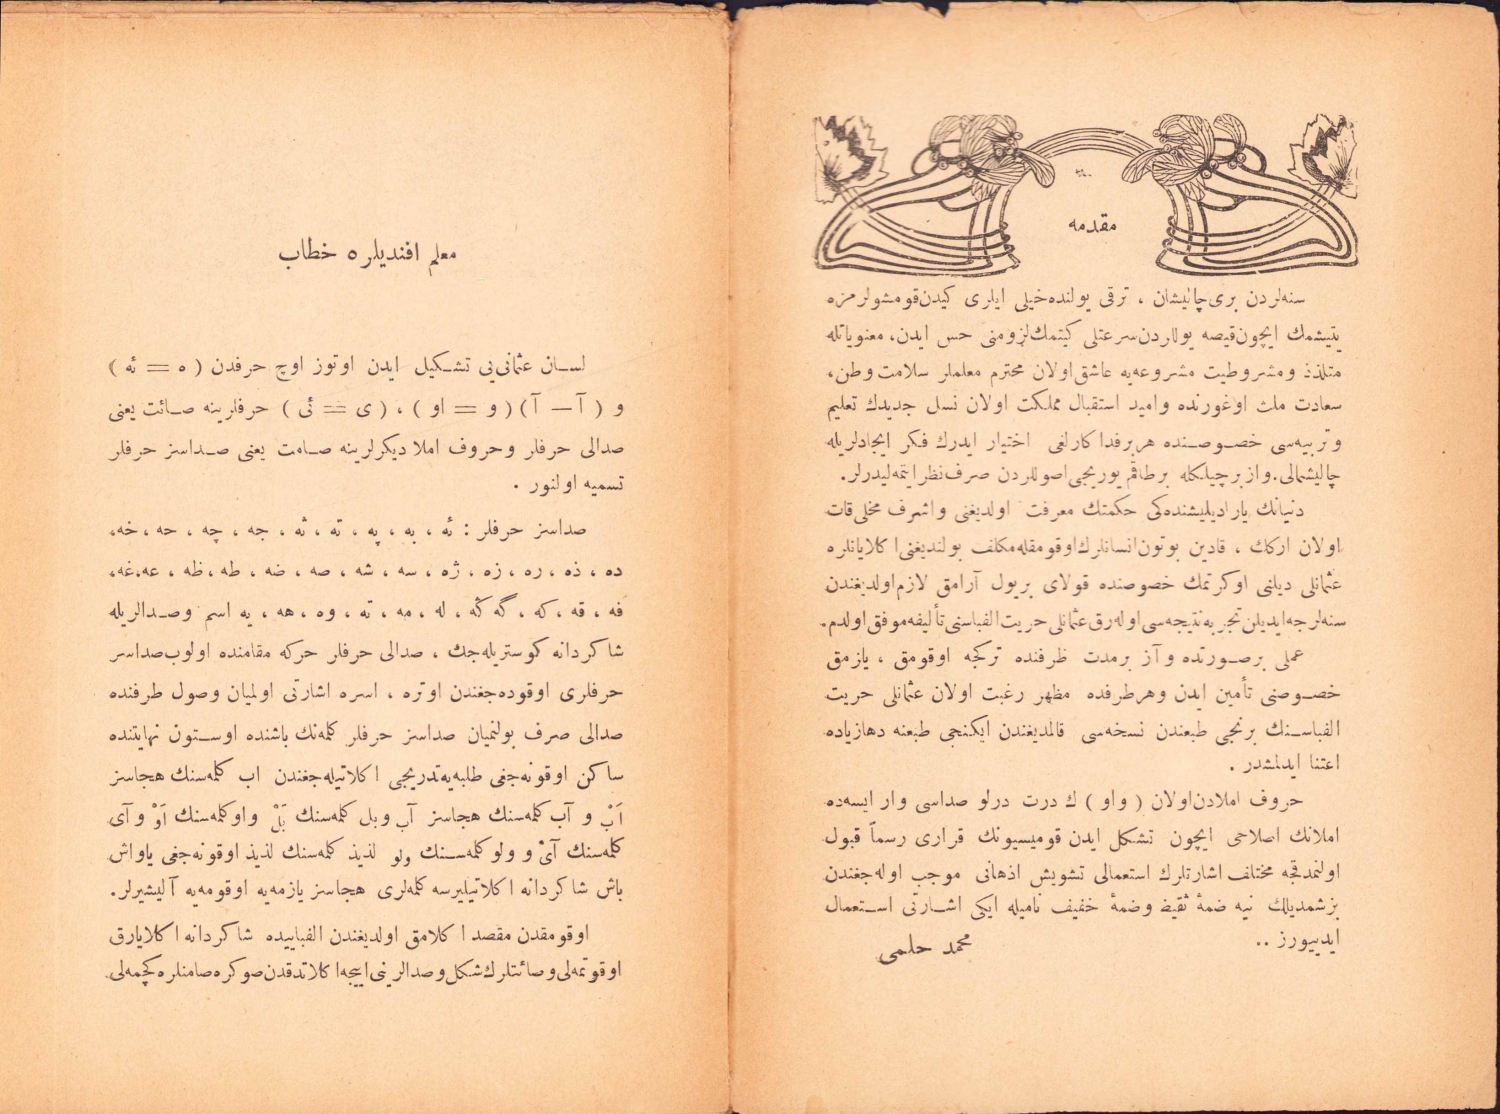 مقدمه
سنه‌لردن بری چالیشان ، ترقی یولنده خیلی ایلری کیدن قومشولرمزه
یتیشمك ایچون قیصه یوللردن سرعتلی کیتمك لزومنی حس ایدن، معنویاتله
متلذذ ومشروطیت مشروعه‌یه عاشق اولان محترم معلملر سلامت وطن،
سعادت ملت اوغورنده وامید استقبال مملکت اولان نسل جدیدك تعلیم
وتربیه‌سی خصوصنده هربرفداکارلغی اختیار ایدرك فکر ایجادلریله
چالیشمالی. واز برچیلکله برطاقم یوریجی اصوللردن صرف نظر ایتمه‌لیدرلر.
دنیانك یارادیلیشنده‌کی حکمتك معرفت اولدیغنی واشرف مخلقات
اولان ارکك ، قادین بوتون انسانلرك اوقومقله مکلف بولندیغنی اکلایانلره
عثمانلی دیلنی اوکرتمك خصوصنده قولای بریول آرامق لازم اولدیغندن
سنه‌لرجه ایدیلن تجربه نتیجه‌سی اوله‌رق عثمانلی حریت الفباسنی تألیفه موفق اولدم.
عملی برصورتده وآز برمدت ظرفنده ترکجه اوقومق ، یازمق
خصوصنی تأمین ایدن وهرطرفده مظهر رغبت اولان عثمانلی حریت
الفباسنك برنجی طبعندن نسخه‌سی قالمدیغندن ایکنجی طبعنه دهازیاده
اعتنا ایدلمشدر .
حروف املادن اولان ( واو ) ك درت درلو صداسی وار ایسه‌ده
املانك اصلاحی ایچون تشکل ایدن قومیسیونك قراری رسماً قبول
اولنمدقجه مختلف اشارتلرك استعمالی تشویش اذهانی موجب اوله‌جغندن
بزشمدیلك ینه ضمهٔ ثقیله وضمهٔ خفیف نامیله ایکی اشارتی استعمال
ایدییورز ..
محمد حلمی
معلم افندیلره خطاب
لسان عثمانی‌یی تشکیل ایدن اوتوز اوچ حرفدن ( ه = ئه )
و ( آ — آ ) ( و = او ) ، ( ی = ئی ) حرفلرینه صائت یعنی
صدالی حرفلر وحروف املا دیکرلرینه صامت یعنی صداسز حرفلر
تسمیه اولنور .
صداسز حرفلر : ئه ، به ، په ، ته ، ثه ، جه ، چه ، حه ، خه،
ده ، ذه ، ره ، زه ، ژه ، سه ، شه ، صه ، ضه ، طه ، ظه ، عه، غه،
فه ، قه ، که ، گه ڭه ، له ، مه ، نه ، وه ، هه ، یه اسم وصدالریله
شاکردانه کوستریله‌جك ، صدالی حرفلر حرکه مقامنده اولوب صداسز
حرفلری اوقوده‌جغندن اوتره ، اسره اشارتی اولمیان وصول طرفنده
صدالی حرف بولنمیان صداسز حرفلر کلمه‌نك باشنده اوستون نهایتنده
ساکن اوقونه‌جغی طلبه‌یه تدریجی اکلاتیله‌جغندن اب کلمه‌سنك هجاسز
اَبْ و آب کلمه‌سنك هجاسز آب وبل کلمه‌سنك بَلْ واوکلمه‌سنك اَوْ وآی
کلمه‌سنك آیْ و ولو کلمه‌سنك ولو لذیذ کلمه‌سنك لذیذ اوقونه‌جغی یاواش
یاش شاکردانه اکلاتیلیرسه کلمه‌لری هجاسز یازمه‌یه اوقومه‌یه آلیشیرلر.
اوقومقدن مقصد اکلامق اولدیغندن الفباییده شاکردانه اکلایارق
اوقوتمه‌لی وصائتلرك شکل وصدالرینی اییجه اکلاتدقدن صوکره صامتلره کچمه‌لی